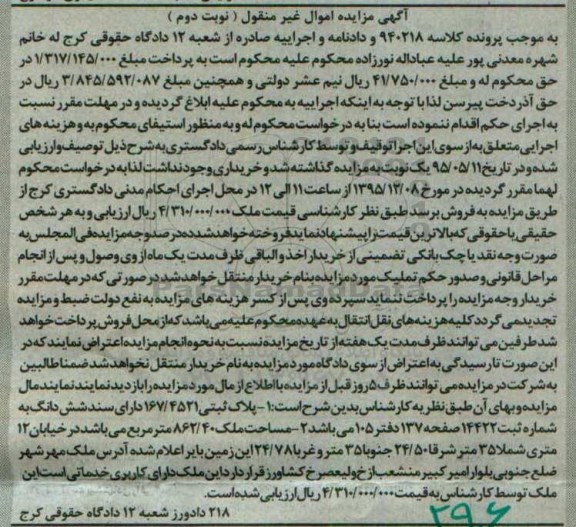 آگهی مزایده اموال غیر منقول ( نوبت دوم )
به موجب پرونده کلاسه ۹۴۰۲۱۸ و دادنامه و اجراییه صادره از شعبه ۱۲ دادگاه حقوقی کرج له خانم
شهره معدنی پور علیه عبداله نورزاده محکوم علیه محکوم است به پرداخت مبلغ ۱/۳۱۷/۱۴۵/۰۰۰ در
حق محکوم له و مبلغ ۴۱/۷۵۰/۰۰۰ ریال نیم عشر دولتی و همچنین مبلغ ۳/۸۴۵/۵۹۲/۰۸۷ ریال در
حق آذردخت پیرسن لذا با توجه به اینکه اجراییه به محکوم علیه ابلاغ گردیده و در مهلت مقرر نسبت
به اجرای حکم اقدام ننموده است بنا به درخواست محکوم له و به منظور استیفای محکوم به و هزینه های
اجرایی متعلق به از سوی این اجرا توقیف و توسط کارشناس رسمی دادگستری به شرح ذیل توصیف و ارزیابی
شده و در تاریخ ۹۵/۰۵/۱۱ یک نوبت به مزایده گذاشته شد و خریداری وجود نداشت لذا به درخواست محکوم
لهما مقرر گردیده در مورخ ۱۳۹۵/۱۲/۰۸ از ساعت ۱۱ الی ۱۲ در محل اجرای احکام مدنی دادگستری کرج از
طریق مزایده به فروش برسد طبق نظر کارشناسی قیمت ملک ۴/۳۱۰/۰۰۰/۰۰۰ ریال ارزیابی و به هر شخص
حقیقی یا حقوقی که بالاترین قیمت را پیشنهاد نماید فروخته خواهد شد ده درصد وجه مزایده فی المجلس به
صورت وجه نقد یا چک بانکی تضمینی از خریدار اخذ و الباقی ظرف مدت یک ماه از وی وصول و پس از انجام
مراحل قانونی و صدور حکم تملیک مورد مزایده بنام خریدار منتقل خواهد شد در صورتی که در مهلت مقرر
خریدار وجه مزایده را پرداخت ننماید سپرده وی پس از کسر هزینه های مزایده به نفع دولت ضبط و مزایده
تجدید می گردد کلیه هزینه های نقل انتقال به عهده محکوم علیه می باشد که از محل فروش پرداخت خواهد
شد طرفین می توانند ظرف مدت یک هفته از تاریخ مزایده نسبت به نحوه انجام مزایده اعتراض نمایند که در
این صورت تا رسیدگی به اعتراض از سوی دادگاه مورد مزایده به نام خریدار منتقل نخواهد شد ضمنا طالبین
به شرکت در مزایده می توانند ظرف ۵ روز قبل از مزایده با اطلاع از مال مورد مزایده را بازدید نمایند نمایند مال
مزایده و بهای آن طبق نظریه کارشناس بدین شرح است: ۱- پلاک ثبتی ۱۶۷/۴۵۲۱ دارای سند شش دانگ به
شماره ثبت ۱۴۴۲۲ صفحه ۱۳۷ دفتر ۱۰۵ می باشد ۲- مساحت ملک ۸۶۲/۴۰ متر مربع می باشد در خیابان ۱۲
متری شمالا ۳۵ متر شرقا ۲۴/۵۰ جنوبا ۳۵ متر و غربا ۲۴/۷۸ این زمین بایر اعلام شده آدرس ملک مهرشهر
ضلع جنوبی بلوار امیر کبیر منشعب از خ ولیعصر خ کشاورز قرار دارد این ملک دارای کاربری خدماتی است این
ملک توسط کارشناس به قیمت ۴/۳۱۰/۰۰۰/۰۰۰ ریال ارزیابی شده است.
۲۱۸ دادورز شعبه ۱۲ دادگاه حقوقی کرج
۲۹۶